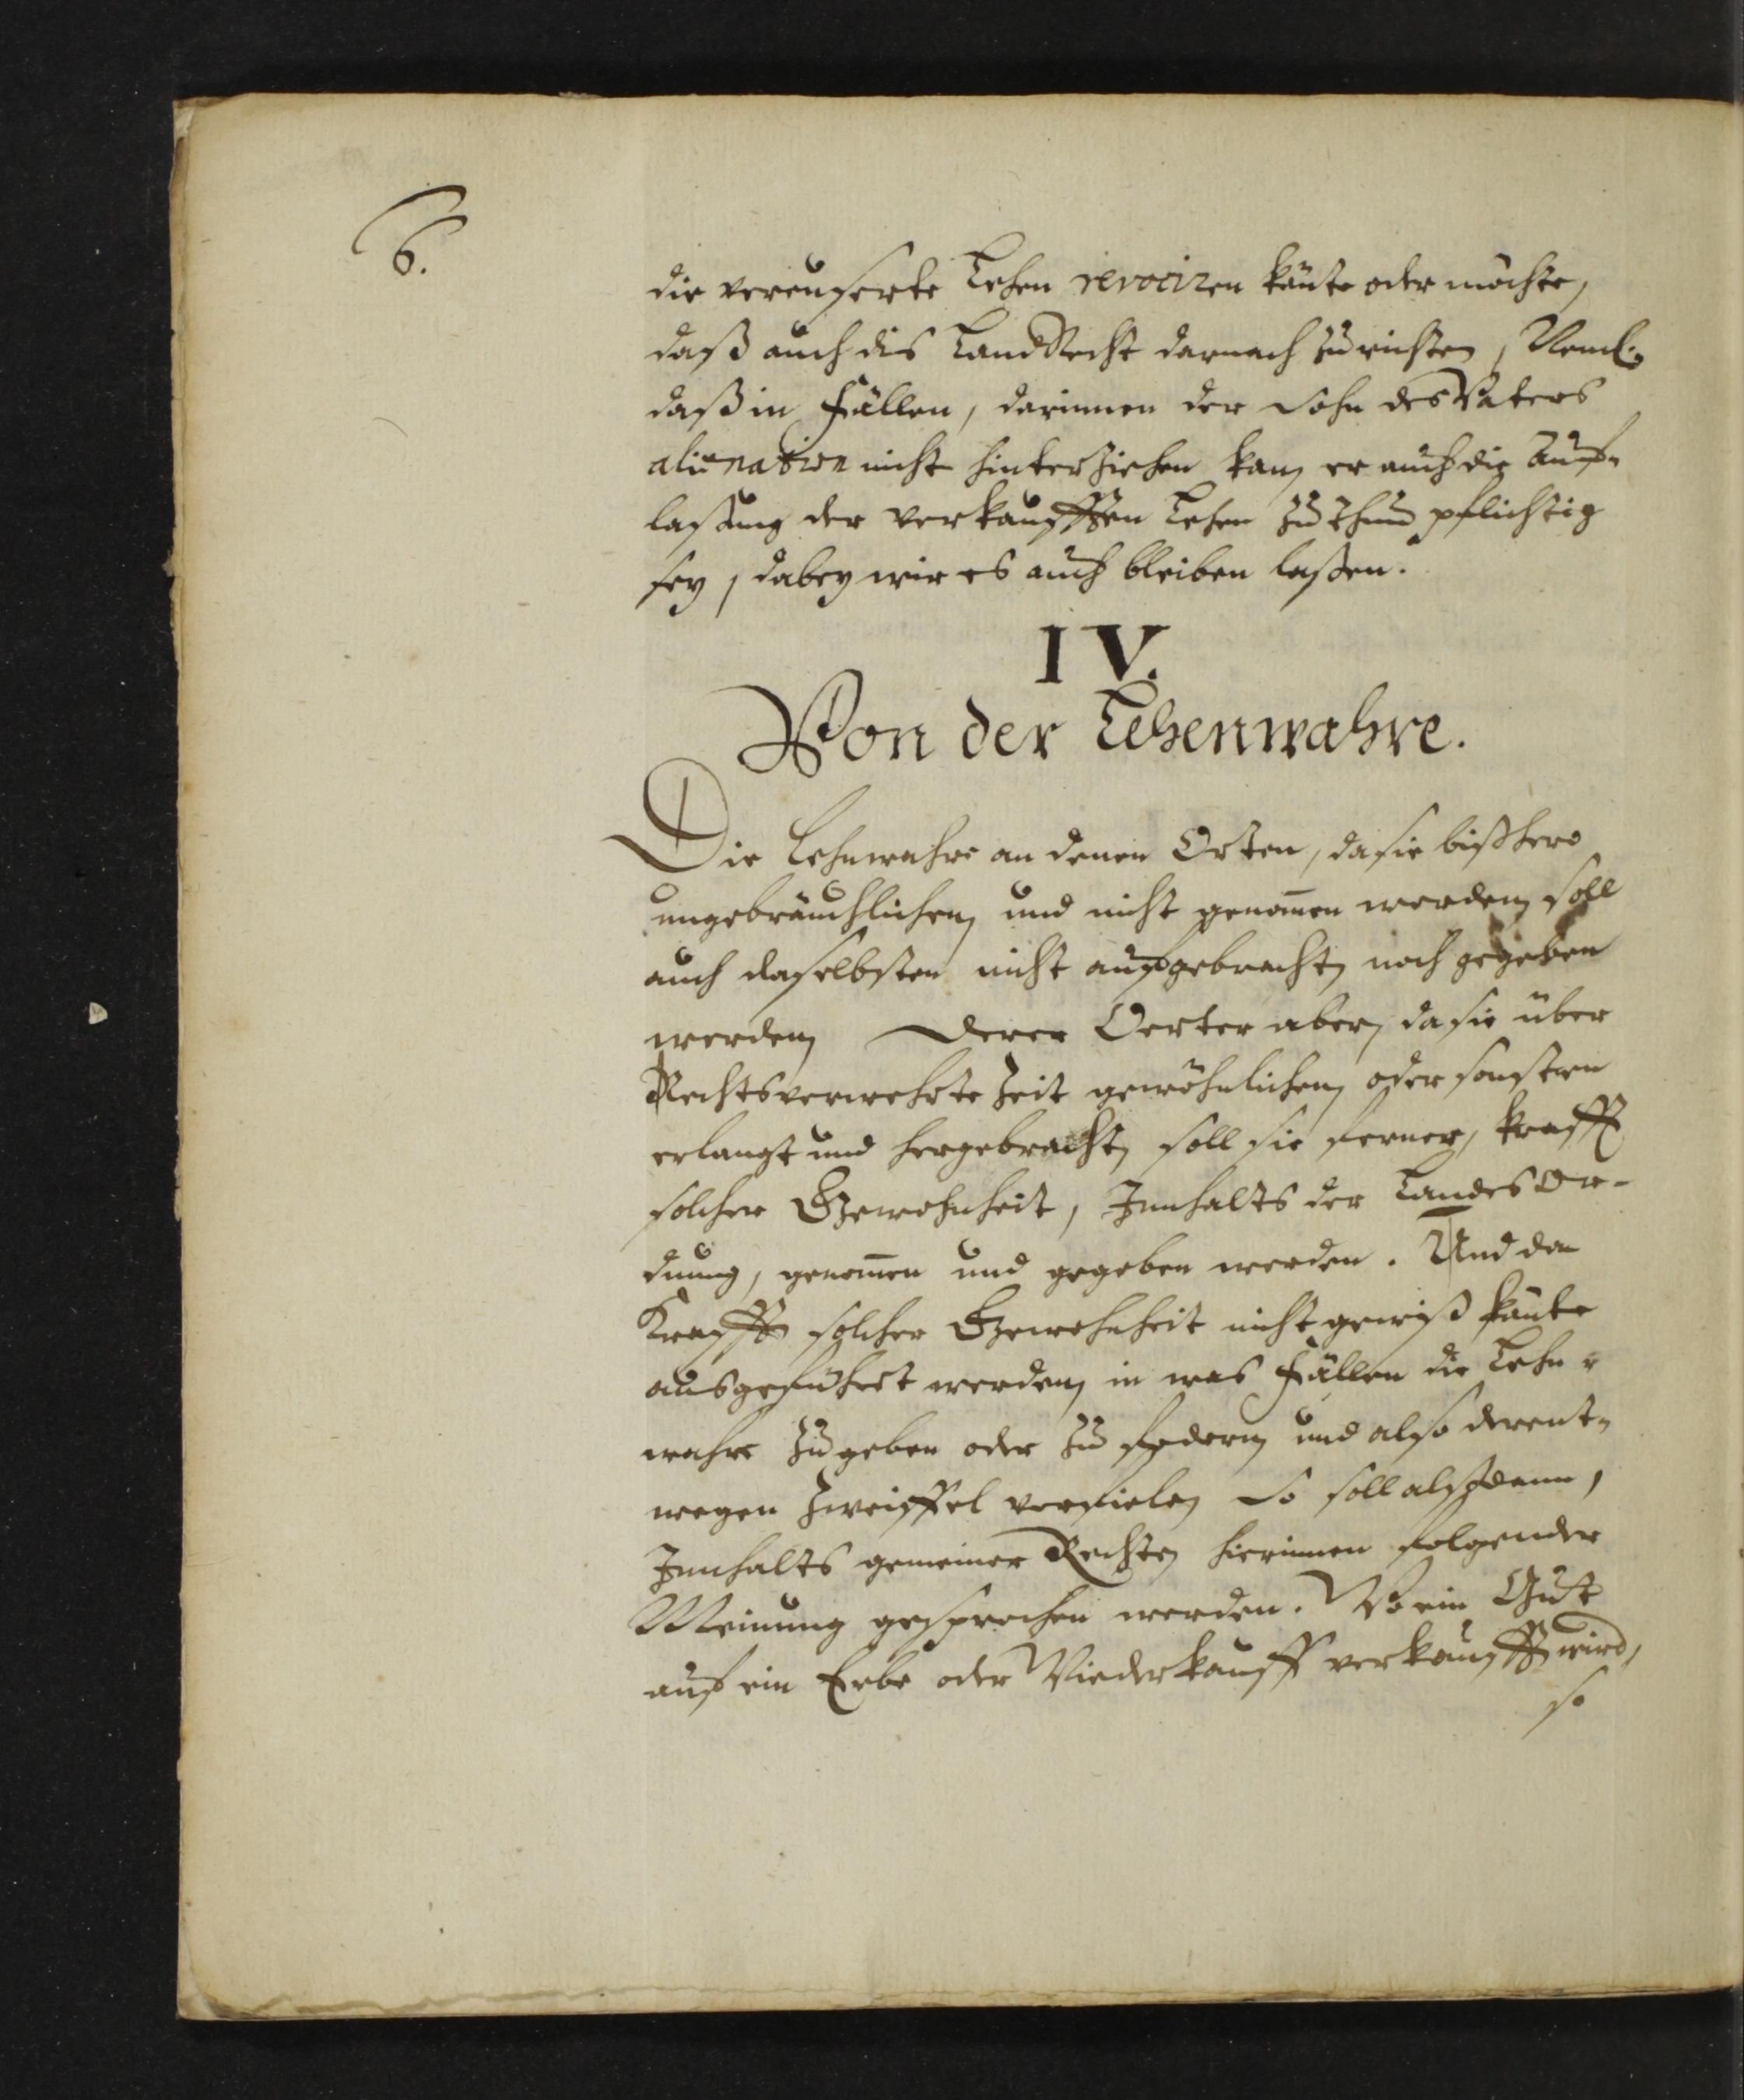 6.
die vereuserte Lehen revociren könte oder möchte,
daß auch dis LandRecht darnach zu richten, Neml.
daß in Fällen, darinnen der Sohn des Vaters
alienation nicht hinterziehen kan, er auch die Auf-
lassung der verkaufften Lehen zu thun pflichtig
sey, dabey wir es auch bleiben laßen.
IV.
Von der Lehenwahre.
Die Lehnwahre an denen Orten, da sie bißhero
ungebräuchlichen, und nicht genom̄en worden, soll
auch daselbsten nicht aufgebracht, noch gegeben
werden, Derer Oerter aber, da sie über
Rechtsverwehrte Zeit gewöhnlichen, oder sonsten
erlangt und hergebracht, soll sie ferner, krafft
solcher Gewohnheit, Innhalts der LandesOr-
dnung, genom̄en und gegeben werden. Und da
Krafft solcher Gewohnheit nicht gewiß könte
ausgeführt werden, in was Fällen die Lehn-
wahre zu geben oder zu fodern, und also derent-
wegen Zweiffel verfielen, So soll alsdann,
Innhalts gemeiner Rechten, hierinnen folgender
Meinung gesprochen werden. Wo ein Gut
auf ein Erbe oder Wiederkauff verkaufft wird,
so